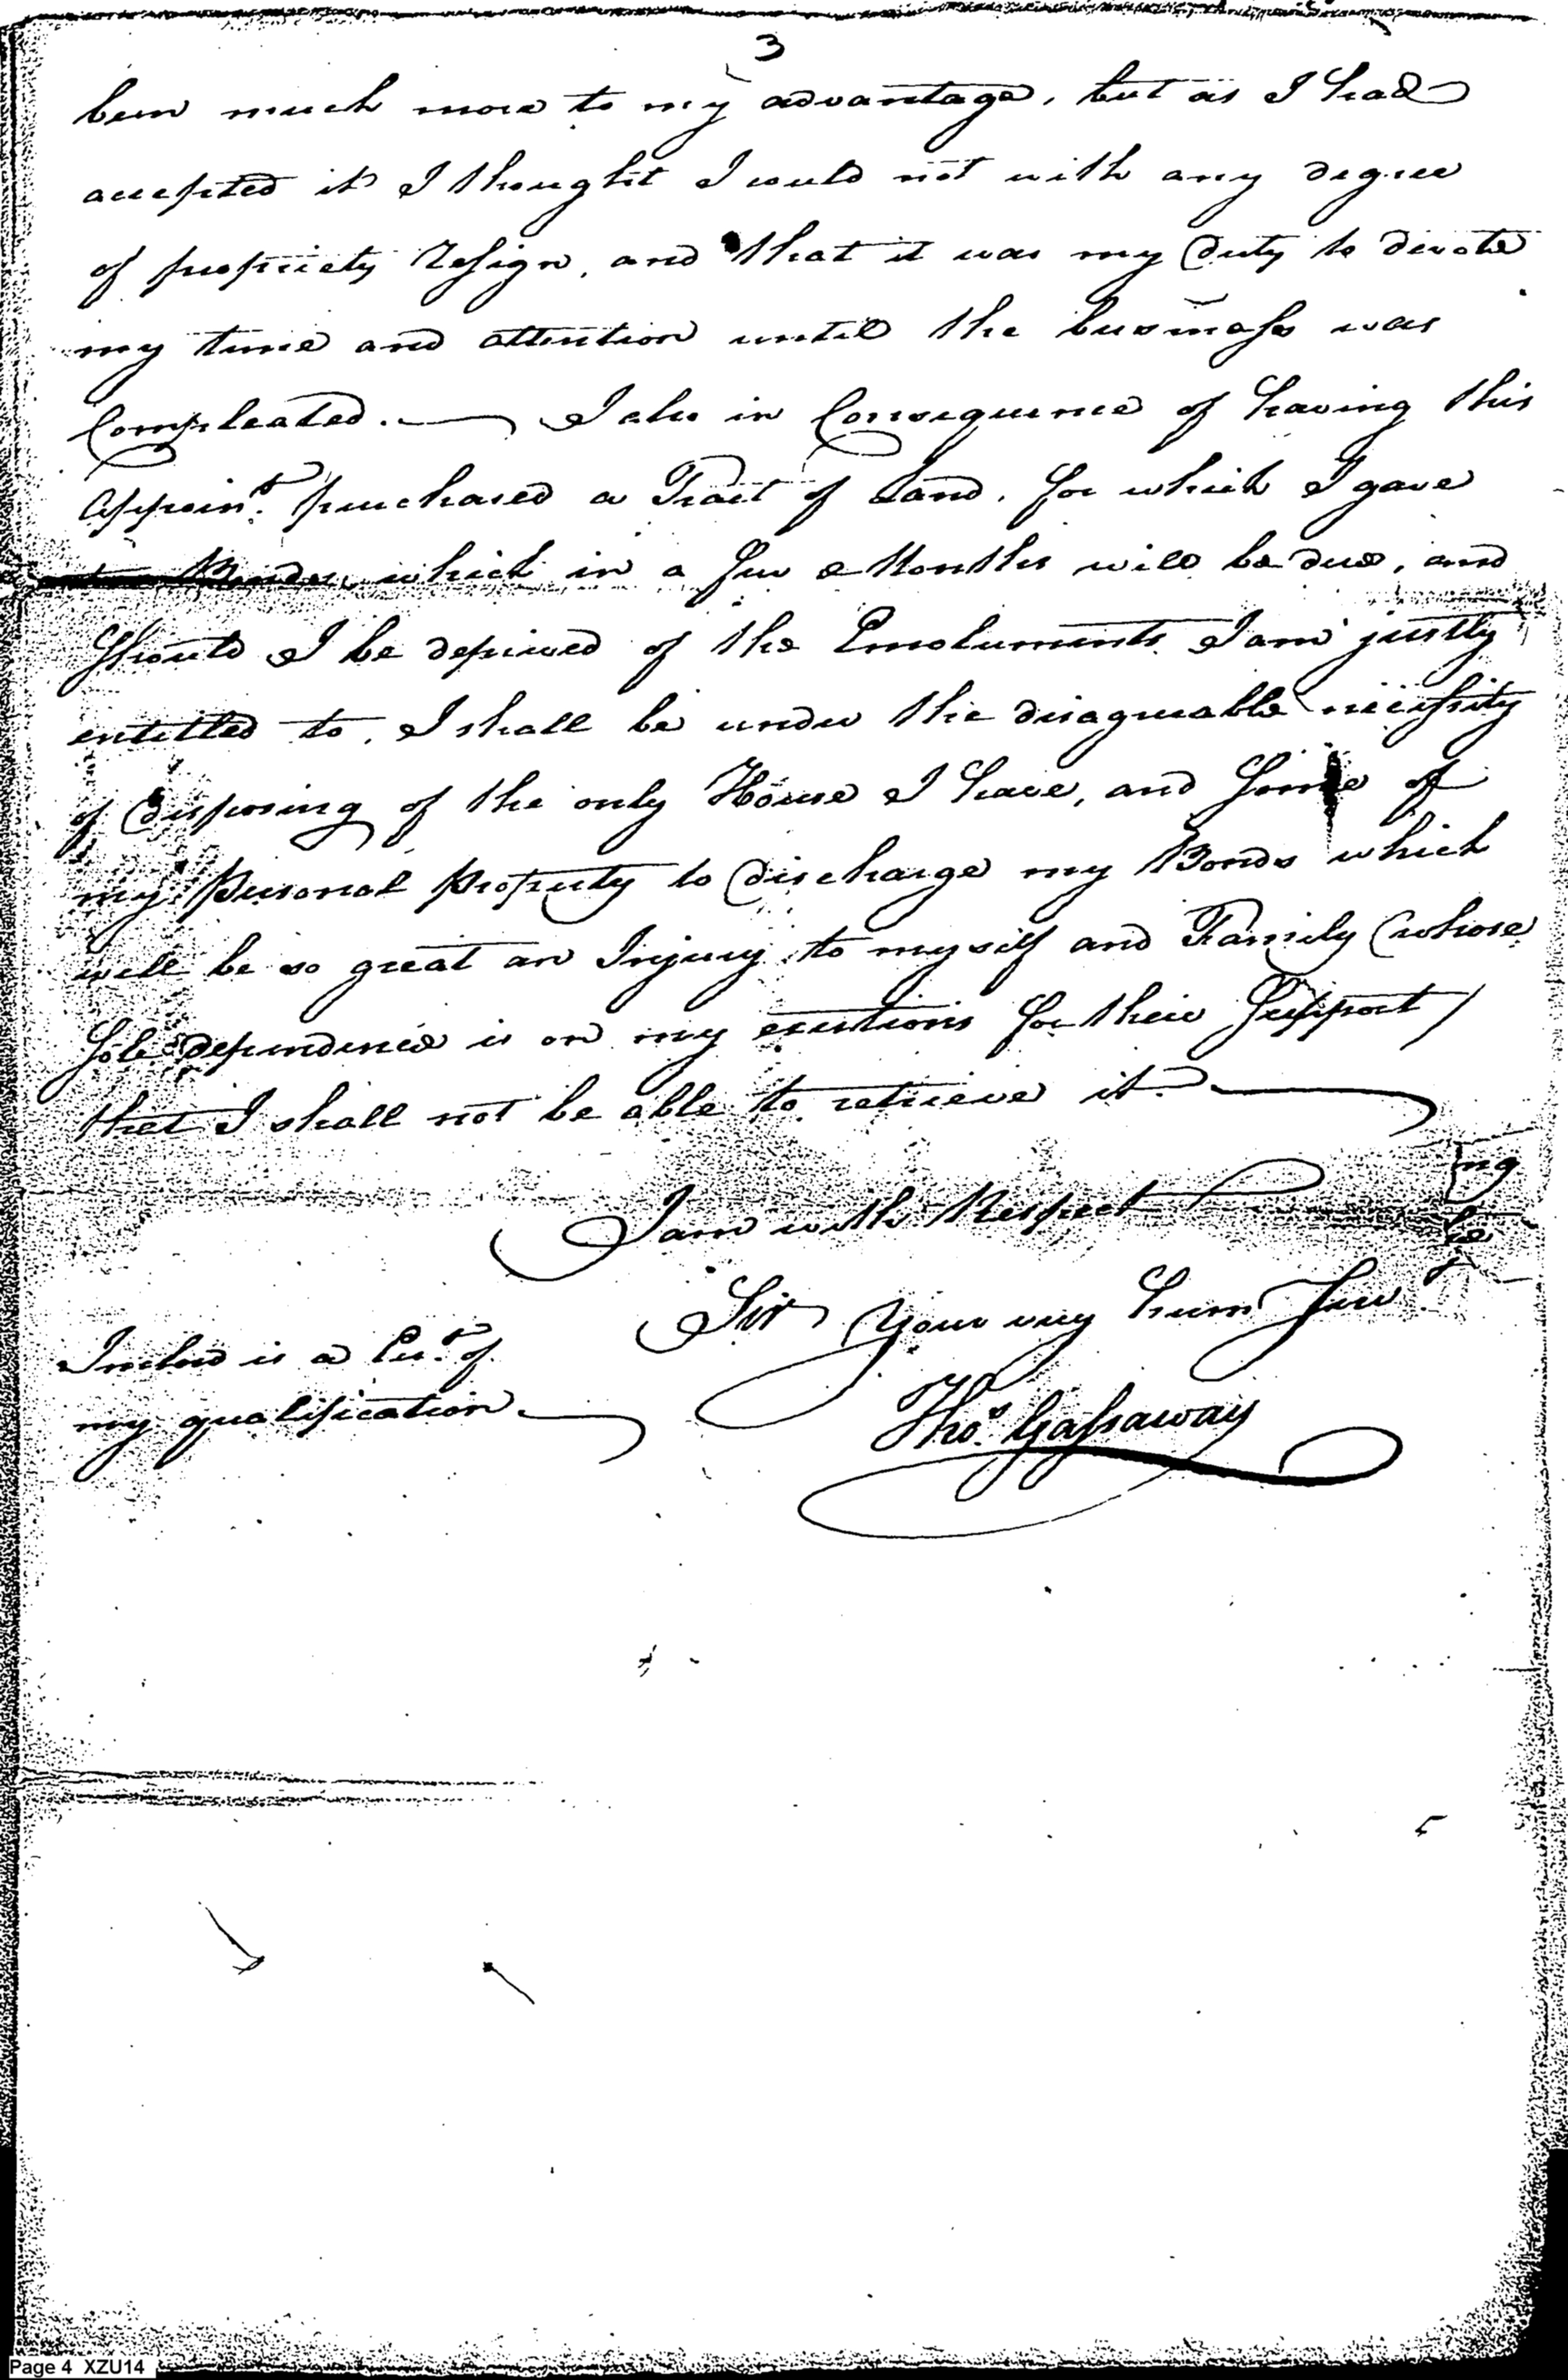 3
been much more to my advantage, but as I had
accepted it I thought I could not with any degree
of propriety resign, and that it was my Duty to devote
my time and attention until the business was
Compleated. — I also in Consequence of having this
Appoint. purchased a Tract of Land, for which I gave
Bonds, which in a few Months will be due, and
Should I be deprived of the Emoluments I am justly
entitled to, I shall be under the disagreable necessity
of Disposing of the only House I have, and Some of
my Personal Property to Discharge my Bonds which
will be so great an Injury to myself and Family (whose
Sole dependence is on my exertions for their Support /
that I shall not be able to retrieve it —
ng
I am with Respect
he
Sir Your very Hum Serv
Inclosd is a Cert. of
my qualification —
Thos. Gassaway
Page 4 XZU14